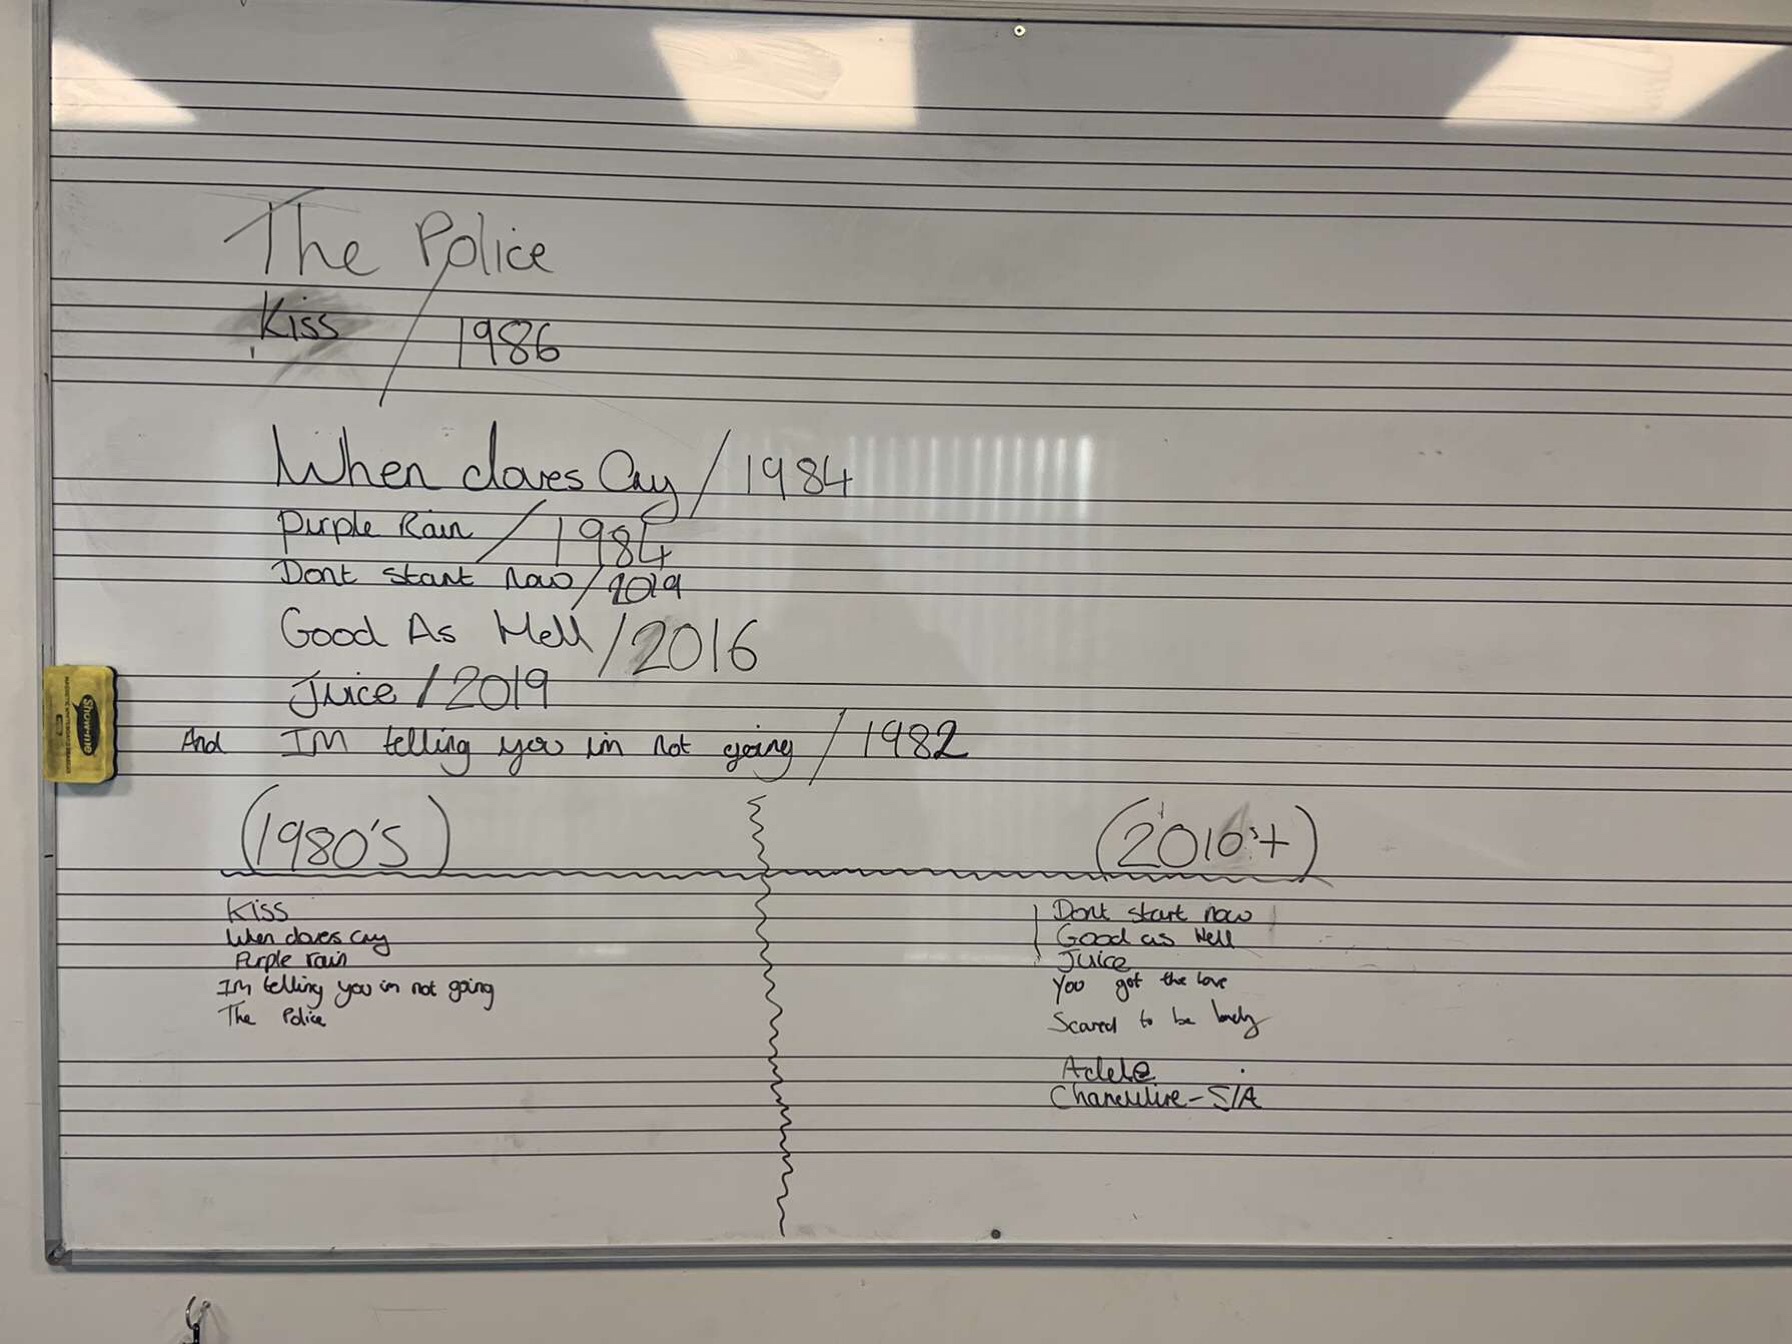 The Police
Kiss / 1986
When doves Cry / 1984
Purple Rain / 1984
Dont start now / 2019
Good As Hell / 2016
Juice / 2019
And IM telling you im not going / 1982
(1980's)
Kiss
When doves cry
Purple rain
IM telling you im not going
The Police
(2010's+)
Dont start now
Good as Hell
Juice
You got the love
Scared to be lonely
Adele
Chandelire - SIA
Show-me